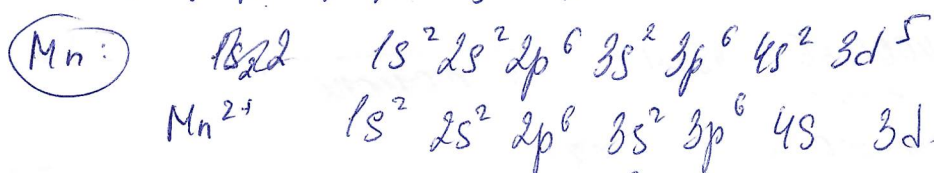 Mn: 1s² 2s² 2p⁶ 3s² 3p⁶ 4s² 3d⁵
Mn²⁺ 1s² 2s² 2p⁶ 3s² 3p⁶ 4s 3d